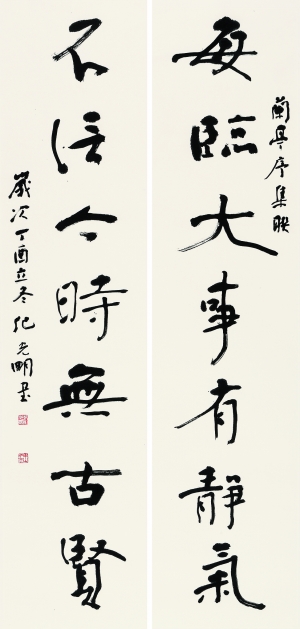 蘭亭序集联
每臨大事有静氣
不信今時無古賢
歲次丁酉立冬纪光明書